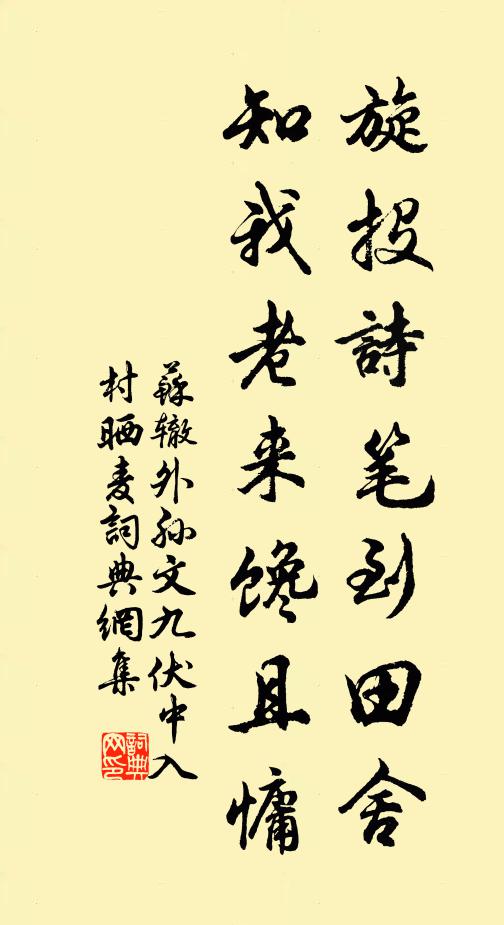 旋投詩笔到田舍
知我老来馋且慵
蘇辙外孙文九伏中入
村晒麦詞典網集
詞典
网印